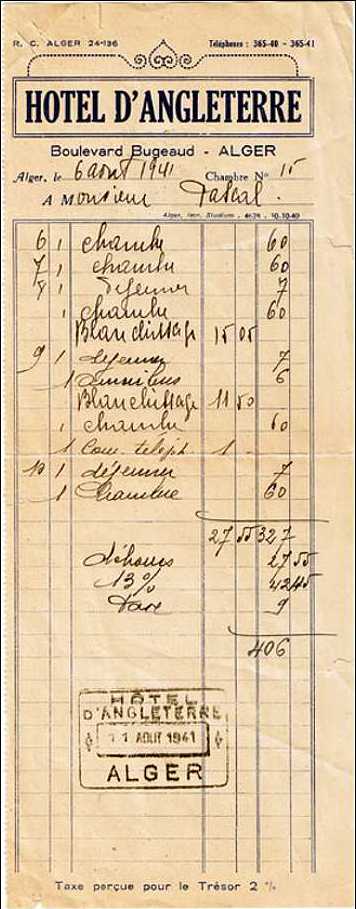 R. C. ALGER 24-136 Téléphones : 365-40 - 365-41
HOTEL D'ANGLETERRE
Boulevard Bugeaud - ALGER
Alger, le 6 aout 1941 Chambre N° 15
A Monsieur Pascal.
Alger, Impr. Studium. - 4624. 10.10.40
6 1 chambre 60
7 1 chambre 60
8 1 dejeuner 7
1 chambre 60
Blanchissage 15 05
9 1 dejeuner 7
1 omnibus 6
Blanchissage 11 50
1 chambre 60
1 Com. teleph 1 -
10 1 dejeuner 7
1 chambre 60
27 55 327
débours 27 55
13% 42 45
Taxe 9
406
HÔTEL
D'ANGLETERRE
11 AOUT 1941
ALGER
Taxe perçue pour le Trésor 2 %